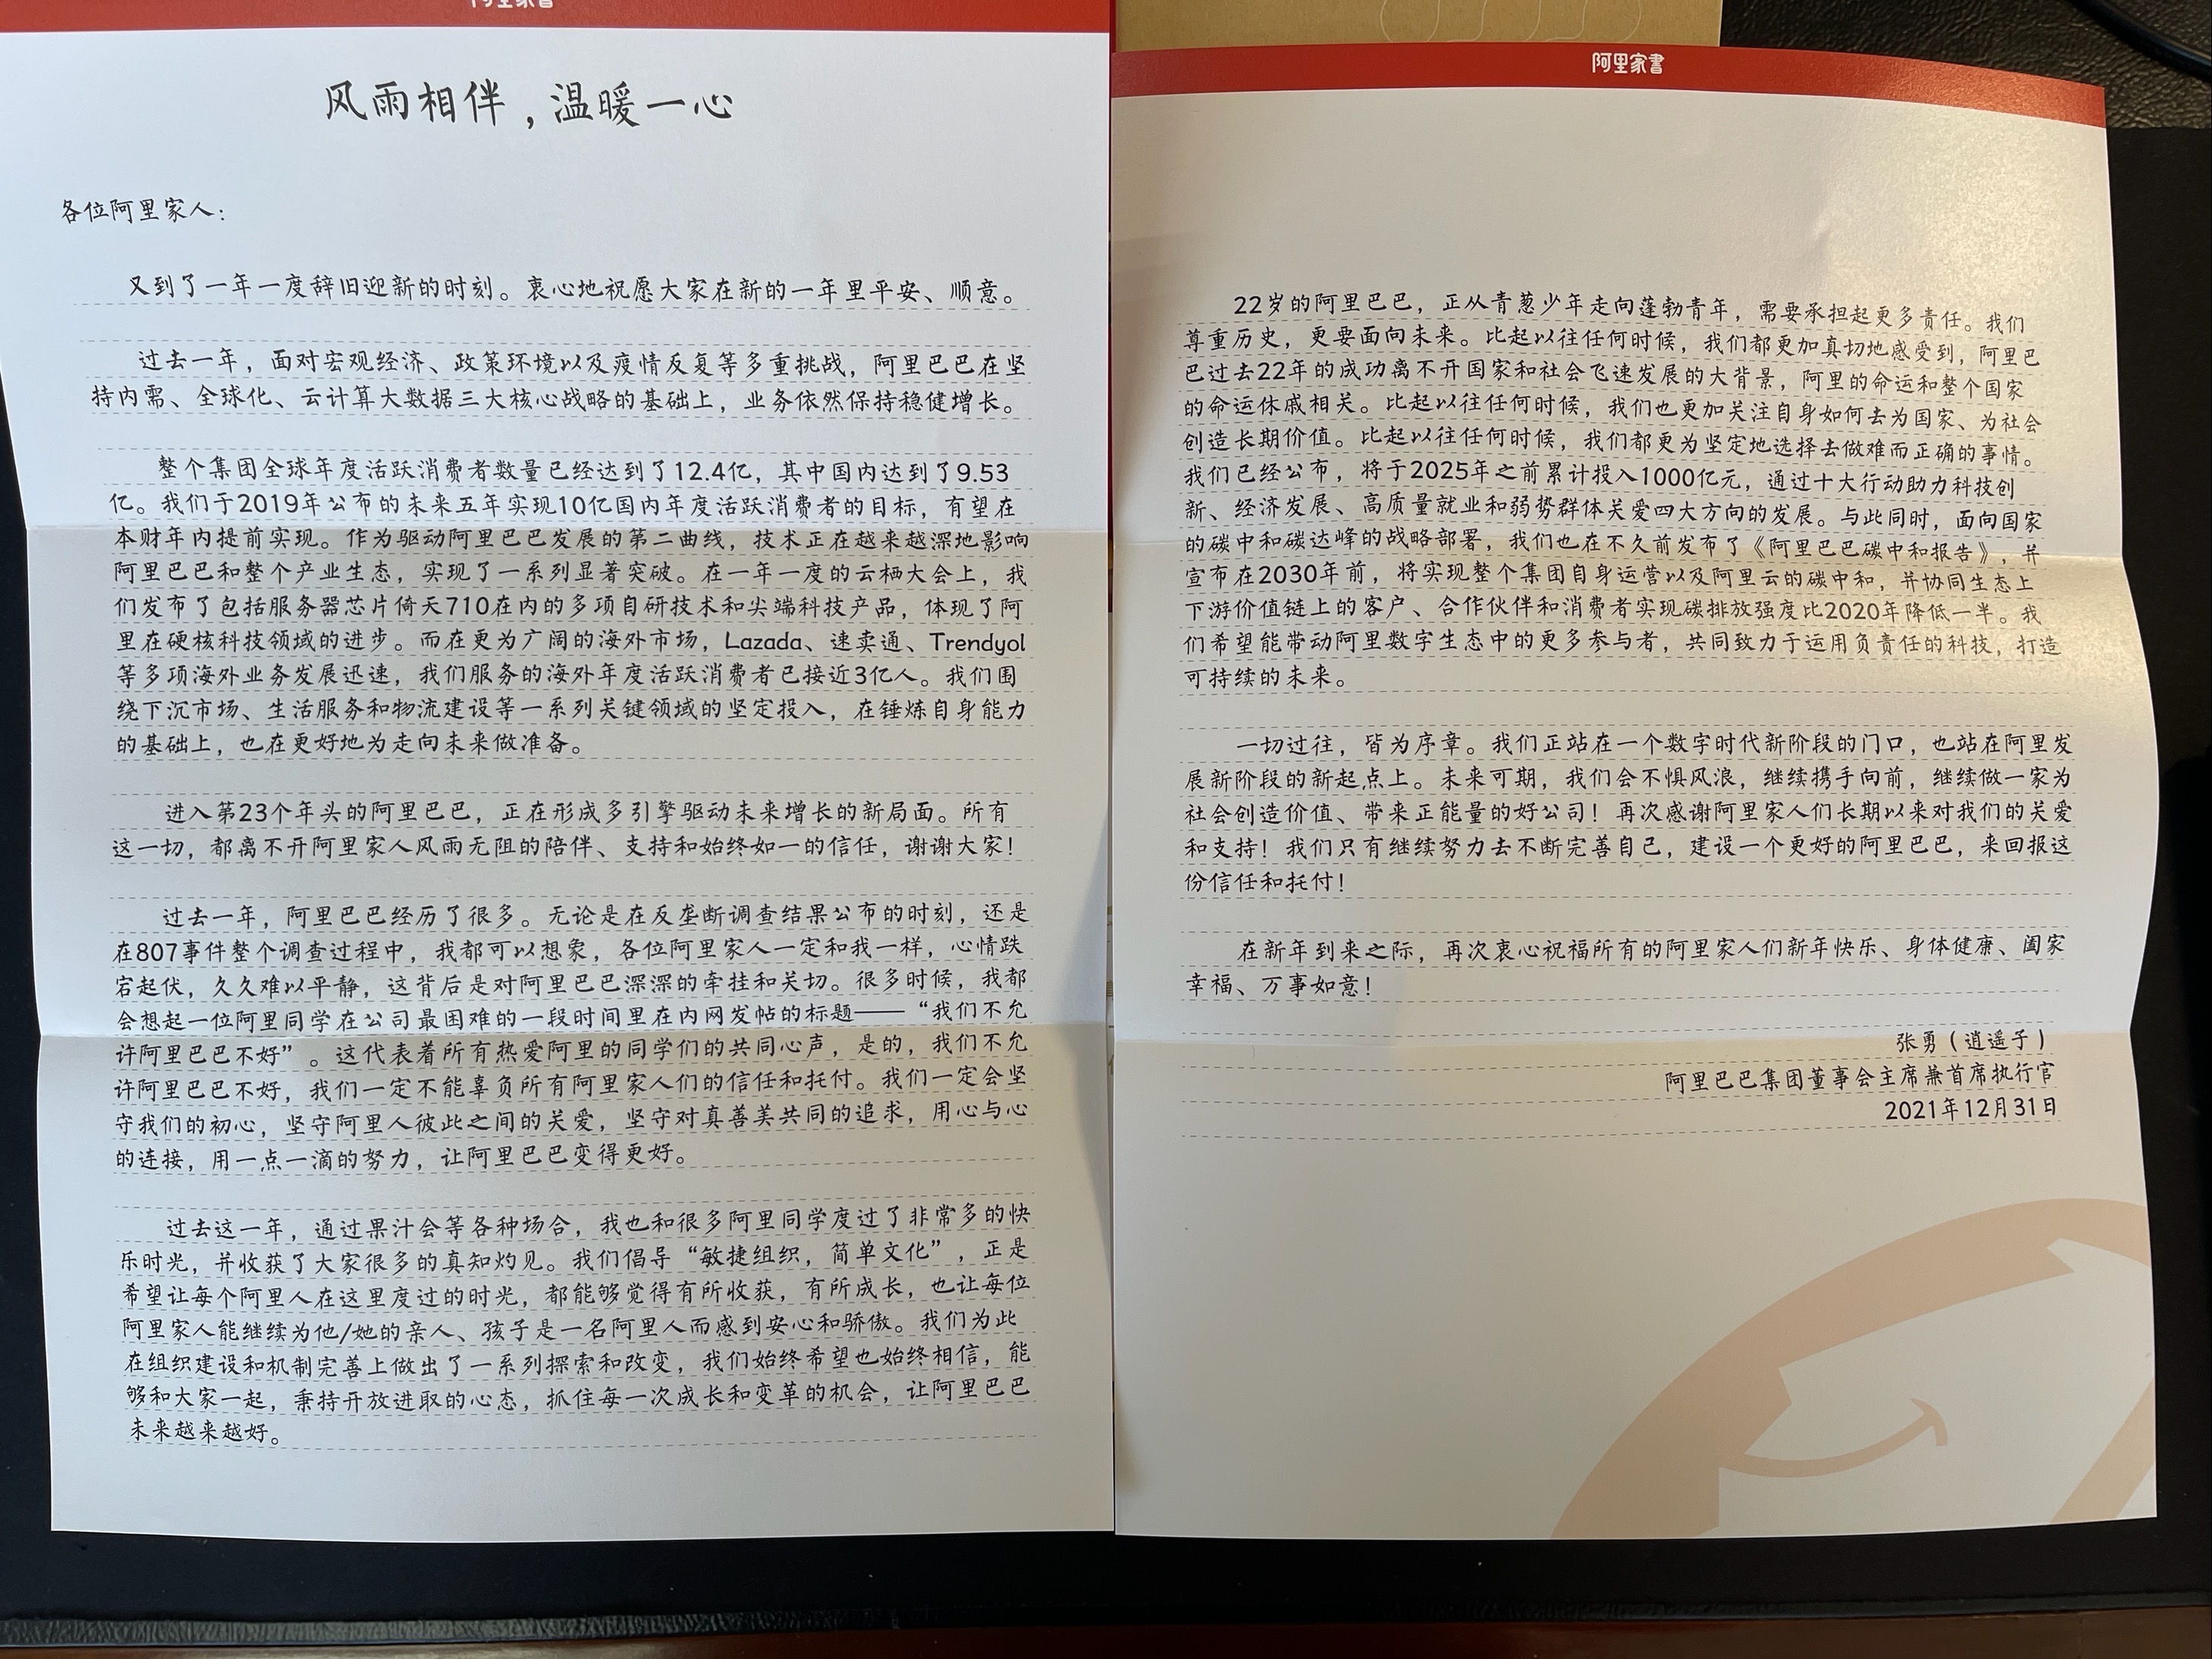 阿里家書
风雨相伴，温暖一心
各位阿里家人：
又到了一年一度辞旧迎新的时刻。衷心地祝愿大家在新的一年里平安、顺意。
过去一年，面对宏观经济、政策环境以及疫情反复等多重挑战，阿里巴巴在坚
持内需、全球化、云计算大数据三大核心战略的基础上，业务依然保持稳健增长。
整个集团全球年度活跃消费者数量已经达到了12.4亿，其中国内达到了9.53
亿。我们于2019年公布的未来五年实现10亿国内年度活跃消费者的目标，有望在
本财年内提前实现。作为驱动阿里巴巴发展的第二曲线，技术正在越来越深地影响
阿里巴巴和整个产业生态，实现了一系列显著突破。在一年一度的云栖大会上，我
们发布了包括服务器芯片倚天710在内的多项自研技术和尖端科技产品，体现了阿
里在硬核科技领域的进步。而在更为广阔的海外市场，Lazada、速卖通、Trendyol
等多项海外业务发展迅速，我们服务的海外年度活跃消费者已接近3亿人。我们围
绕下沉市场、生活服务和物流建设等一系列关键领域的坚定投入，在锤炼自身能力
的基础上，也在更好地为走向未来做准备。
进入第23个年头的阿里巴巴，正在形成多引擎驱动未来增长的新局面。所有
这一切，都离不开阿里家人风雨无阻的陪伴、支持和始终如一的信任，谢谢大家！
过去一年，阿里巴巴经历了很多。无论是在反垄断调查结果公布的时刻，还是
在807事件整个调查过程中，我都可以想象，各位阿里家人一定和我一样，心情跌
宕起伏，久久难以平静，这背后是对阿里巴巴深深的牵挂和关切。很多时候，我都
会想起一位阿里同学在公司最困难的一段时间里在内网发帖的标题——“我们不允
许阿里巴巴不好”。这代表着所有热爱阿里的同学们的共同心声，是的，我们不允
许阿里巴巴不好，我们一定不能辜负所有阿里家人们的信任和托付。我们一定会坚
守我们的初心，坚守阿里人彼此之间的关爱，坚守对真善美共同的追求，用心与心
的连接，用一点一滴的努力，让阿里巴巴变得更好。
过去这一年，通过果汁会等各种场合，我也和很多阿里同学度过了非常多的快
乐时光，并收获了大家很多的真知灼见。我们倡导“敏捷组织，简单文化”，正是
希望让每个阿里人在这里度过的时光，都能够觉得有所收获，有所成长，也让每位
阿里家人能继续为他/她的亲人、孩子是一名阿里人而感到安心和骄傲。我们为此
在组织建设和机制完善上做出了一系列探索和改变，我们始终希望也始终相信，能
够和大家一起，秉持开放进取的心态，抓住每一次成长和变革的机会，让阿里巴巴
未来越来越好。
阿里家書
22岁的阿里巴巴，正从青葱少年走向蓬勃青年，需要承担起更多责任。我们
尊重历史，更要面向未来。比起以往任何时候，我们都更加真切地感受到，阿里巴
巴过去22年的成功离不开国家和社会飞速发展的大背景，阿里的命运和整个国家
的命运休戚相关。比起以往任何时候，我们也更加关注自身如何去为国家、为社会
创造长期价值。比起以往任何时候，我们都更为坚定地选择去做难而正确的事情。
我们已经公布，将于2025年之前累计投入1000亿元，通过十大行动助力科技创
新、经济发展、高质量就业和弱势群体关爱四大方向的发展。与此同时，面向国家
的碳中和碳达峰的战略部署，我们也在不久前发布了《阿里巴巴碳中和报告》，并
宣布在2030年前，将实现整个集团自身运营以及阿里云的碳中和，并协同生态上
下游价值链上的客户、合作伙伴和消费者实现碳排放强度比2020年降低一半。我
们希望能带动阿里数字生态中的更多参与者，共同致力于运用负责任的科技，打造
可持续的未来。
一切过往，皆为序章。我们正站在一个数字时代新阶段的门口，也站在阿里发
展新阶段的新起点上。未来可期，我们会不惧风浪，继续携手向前，继续做一家为
社会创造价值、带来正能量的好公司！再次感谢阿里家人们长期以来对我们的关爱
和支持！我们只有继续努力去不断完善自己，建设一个更好的阿里巴巴，来回报这
份信任和托付！
在新年到来之际，再次衷心祝福所有的阿里家人们新年快乐、身体健康、阖家
幸福、万事如意！
张勇（逍遥子）
阿里巴巴集团董事会主席兼首席执行官
2021年12月31日